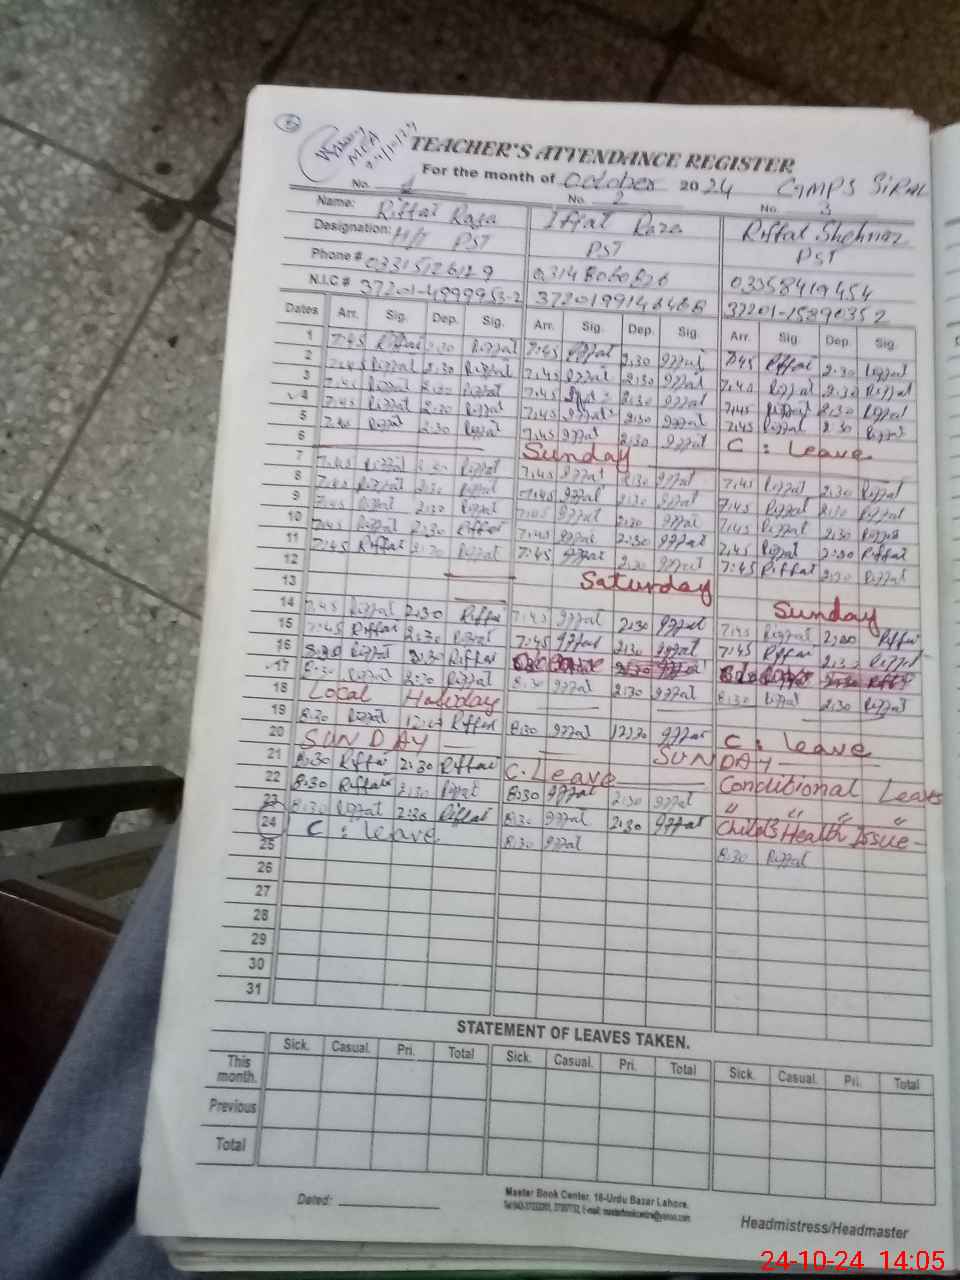 MEA
TEACHER'S ATTENDANCE REGISTER
For the month of October 2024 GMPS SiRAL
No. 1 No. 2 No. 3
Name: Riffat Raza Iffat Raza Riffat Shehnaz
Designation: H/T PST PST PST
Phone #
N.I.C #
Dates Arr. Sig. Dep. Sig. Arr. Sig. Dep. Sig. Arr. Sig. Dep. Sig.
1 7:45 Riffat 2:30 Riffat 7:45 Iffat 2:30 Iffat 7:45 Riffat 2:30 Riffat
2 7:45 Riffat 2:30 Riffat 7:45 Iffat 2:30 Iffat 7:45 Riffat 2:30 Riffat
3 7:45 Riffat 2:30 Riffat 7:45 Iffat 2:30 Iffat 7:45 Riffat 2:30 Riffat
4 7:45 Riffat 2:30 Riffat 7:45 Iffat 2:30 Iffat 7:45 Riffat 2:30 Riffat
5 7:45 Riffat 2:30 Riffat 7:45 Iffat 2:30 Iffat C : Leave
6 Sunday
7 7:45 Riffat 2:30 Riffat 7:45 Iffat 2:30 Iffat 7:45 Riffat 2:30 Riffat
8 7:45 Riffat 2:30 Riffat 7:45 Iffat 2:30 Iffat 7:45 Riffat 2:30 Riffat
9 7:45 Riffat 2:30 Riffat 7:45 Iffat 2:30 Iffat 7:45 Riffat 2:30 Riffat
10 7:45 Riffat 2:30 Riffat 7:45 Iffat 2:30 Iffat 7:45 Riffat 2:30 Riffat
11 7:45 Riffat 2:30 Riffat 7:45 Iffat 2:30 Iffat 7:45 Riffat 2:30 Riffat
12 Saturday
13 Sunday
14 7:45 Riffat 2:30 Riffat 7:45 Iffat 2:30 Iffat 7:45 Riffat 2:30 Riffat
15 7:45 Riffat 2:30 Riffat 7:45 Iffat 2:30 Iffat 7:45 Riffat 2:30 Riffat
16 8:30 Riffat 2:30 Riffat
17 8:30 Riffat 2:30 Riffat 8:30 Iffat 2:30 Iffat 8:30 Riffat 2:30 Riffat
18 Local Holiday
19 8:30 Riffat Riffat 8:30 Iffat Iffat C : Leave
20 SUNDAY SUNDAY
21 8:30 Riffat 2:30 Riffat C. Leave Conditional Leave
22 8:30 Riffat 2:30 Riffat 8:30 Iffat 2:30 Iffat " " " "
23 8:30 Riffat 2:30 Riffat 8:30 Iffat 2:30 Iffat Child's Health Issue -
24 C : leave 8:30 Iffat 8:30 Riffat
25
26
27
28
29
30
31
STATEMENT OF LEAVES TAKEN.
Sick. Casual. Pri. Total Sick. Casual. Pri. Total Sick. Casual. Pri. Total
This month.
Previous
Total
Dated:
Master Book Center, 16-Urdu Bazar Lahore.
Headmistress/Headmaster
24-10-24 14:05